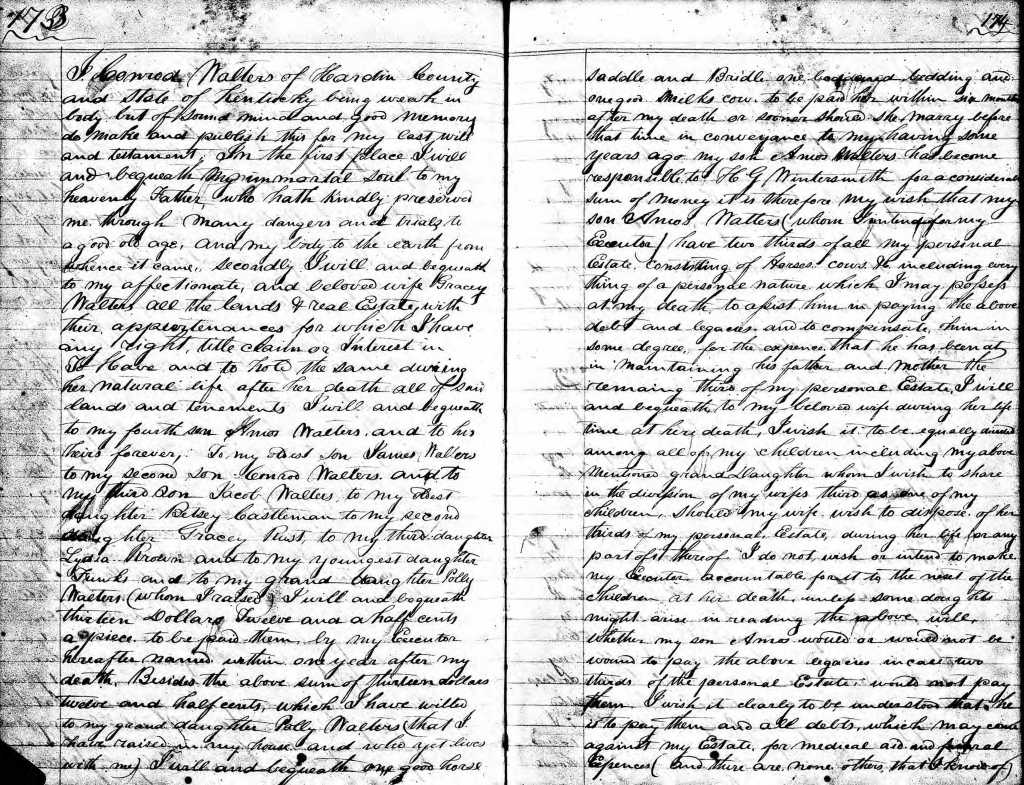 173
I Conrod Walters of Hardin County
and state of Kentucky being weak in
body but of sound mind and good memory
do make and publish this for my last will
and testament, In the first place I will
and bequeath my immortal soul to my
heavenly Father, who hath kindly preserved
me through many dangers and trials to
a good old age, and my body to the earth from
whence it came, secondly I will and bequeath
to my affectionate, and beloved wife Gracey
Walters all the lands & real Estate, with
their appurtenances for which I have
any right, title claim or Interest in
To Have and to hold the same during
her natural life after her death all of said
lands and tenements I will and bequeath
to my fourth son Amos Walters, and to his
heirs forever, To my Oldest Son James Walters
to my second son Conrod Walters and to
my third son Jacob Walters, to my Oldest
daughter Betsey Castleman to my second
daughter Gracey Rust, to my third daughter
Lydia Brown and to my youngest daughter
Funks and to my grand daughter Polly
Walters (whom I raised) I will and bequeath
thirteen Dollars Twelve and a half cents
a piece to be paid them by my Executor
hereafter named within one year after my
death. Besides the above sum of thirteen dollars
twelve and half cents, which I have willed
to my grand daughter Polly Walters (that I
have raised in my house and who yet lives
with me) I will and bequeath one good horse
174
saddle and Bridle one bedding and
one good Milks cow. to be paid her within six months
after my death or sooner should she marry before
that time in conveyance to my having some
years ago my son Amos Walters has become
responsible to H G Wintersmith for a considerable
sum of money it is therefore my wish that my
son Amos Walters (whom I intend for my
Executor) have two thirds of all my personal
Estate, consisting of Horses cows &c including every
thing of a personal nature which I may possess
at my death to assist him in paying the above
debts and legacies and to compensate him in
some degree, for the expence that he has been at
in maintaining his father and mother the
remaing third of my personal Estate, I will
and bequeath to my beloved wife during her life
time at here death, I wish it to be equally divided
among all of my children including my above
mentioned grand Daughter whom I wish to share
in the division of my wifes third as one of my
children, should my wife wish to dispose of her
thirds of my personal Estate, during her life or any
part of it thereof I do not wish or intend to make
my Executor accountable for it to the rest of the
children at her death, unless some doughts
might arise in reading the above will,
whether my son Amos would or would not be
wound to pay the above legacies in case two
thirds of the personal Estate would not pay
them I wish it clearly to be understood that he
is to pay them and all debts, which may come
against my Estate, for medical aid and funeral
Expences (and there are none others that I know of)